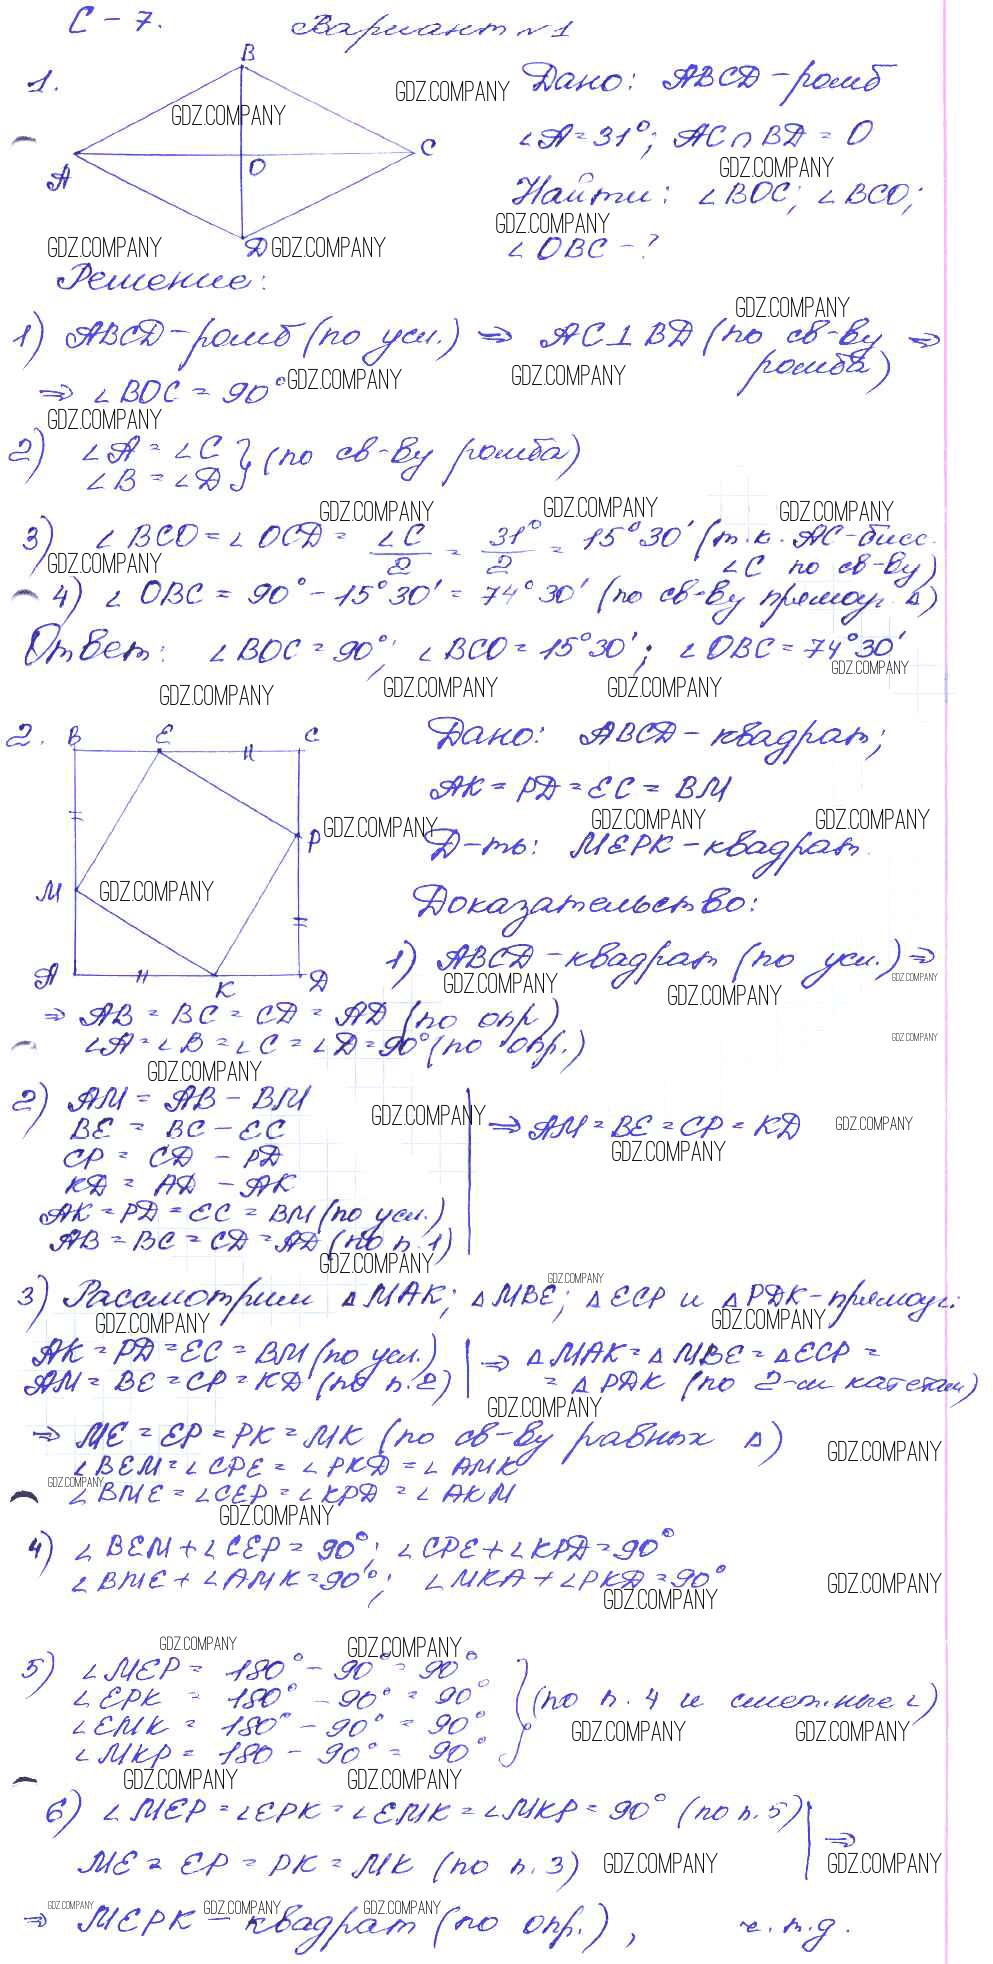 С – 7. Вариант №1
1.
B
A
O
C
D
Дано: ABCD – ромб
∠A = 31°; AC ∩ BD = O
Найти: ∠BOC; ∠BCO;
∠OBC – ?
Решение:
1) ABCD – ромб (по усл.) ⇒ AC ⊥ BD (по св-ву ромба) ⇒
⇒ ∠BOC = 90°
2) ∠A = ∠C
∠B = ∠D } (по св-ву ромба)
3) ∠BCO = ∠OCD = ∠C/2 = 31°/2 = 15°30′ (т.к. AC – бисс.
∠C по св-ву)
4) ∠OBC = 90° – 15°30′ = 74°30′ (по св-ву прямоуг. Δ)
Ответ: ∠BOC = 90°; ∠BCO = 15°30′; ∠OBC = 74°30′
2.
B E C
P
M
A K D
Дано: ABCD – квадрат;
AK = PD = EC = BM
Д-ть: MEPK – квадрат.
Доказательство:
1) ABCD – квадрат (по усл.) ⇒
⇒ AB = BC = CD = AD (по опр)
∠A = ∠B = ∠C = ∠D = 90° (по опр.)
2) AM = AB – BM
BE = BC – EC
CP = CD – PD
KD = AD – AK
AK = PD = EC = BM (по усл.)
AB = BC = CD = AD (по п. 1)
⇒ AM = BE = CP = KD
3) Рассмотрим ΔMAK; ΔMBE; ΔECP и ΔPDK – прямоуг.:
AK = PD = EC = BM (по усл.)
AM = BE = CP = KD (по п. 2)
⇒ ΔMAK = ΔMBE = ΔECP =
= ΔPDK (по 2-м катетам)
⇒ ME = EP = PK = MK (по св-ву равных Δ)
∠BEM = ∠CPE = ∠PKD = ∠AMK
∠BME = ∠CEP = ∠KPD = ∠AKM
4) ∠BEM + ∠CEP = 90°; ∠CPE + ∠KPD = 90°
∠BME + ∠AMK = 90°; ∠MKA + ∠PKD = 90°
5) ∠MEP = 180° – 90° = 90°
∠EPK = 180° – 90° = 90°
∠EMK = 180° – 90° = 90°
∠MKP = 180 – 90° = 90°
} (по п. 4 и смежные ∠)
6) ∠MEP = ∠EPK = ∠EMK = ∠MKP = 90° (по п. 5)
ME = EP = PK = MK (по п. 3)
⇒
⇒ MEPK – квадрат (по опр.), ч.т.д.
GDZ.COMPANY